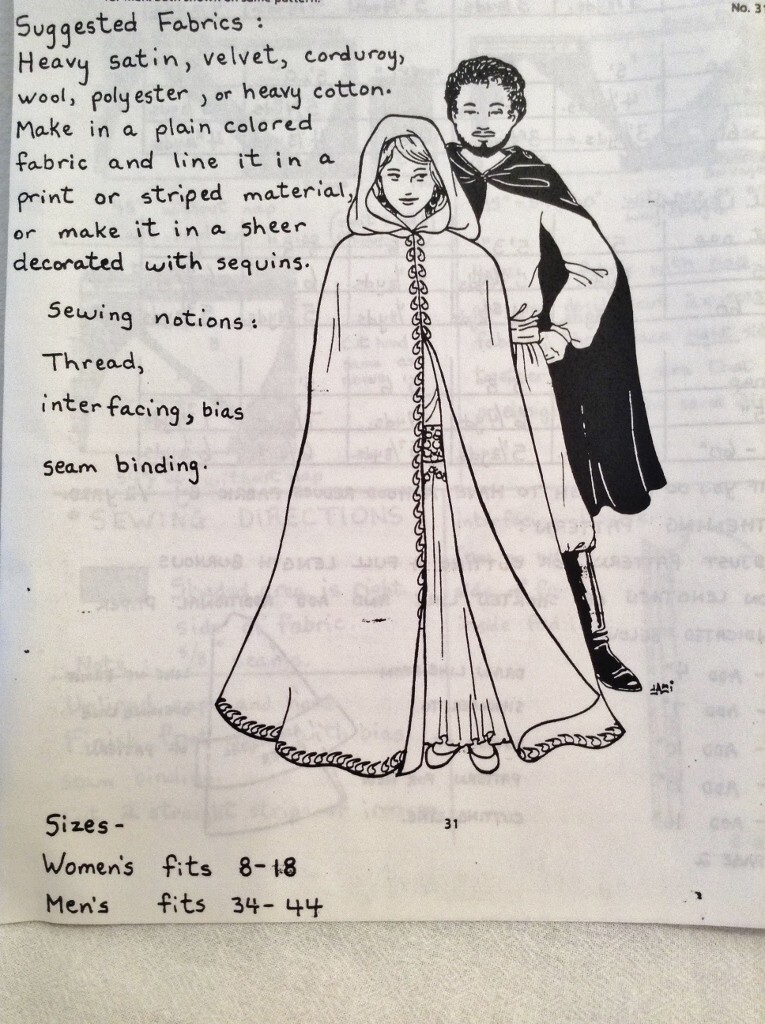 No. 31
Suggested Fabrics :
Heavy satin, velvet, corduroy,
wool, polyester, or heavy cotton.
Make in a plain colored
fabric and line it in a
print or striped material,
or make it in a sheer
decorated with sequins.
Sewing notions :
Thread,
interfacing, bias
seam binding.
31
Sizes -
Women's fits 8-18
Men's fits 34-44